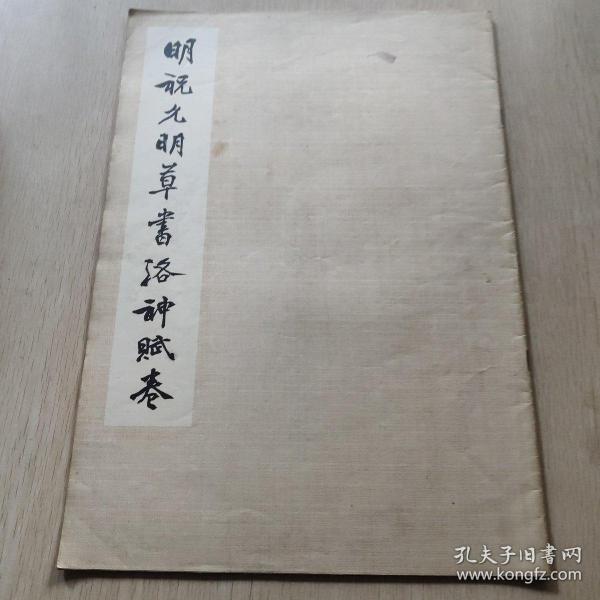 明祝允明草書洛神賦卷
孔夫子旧书网
www.kongfz.com